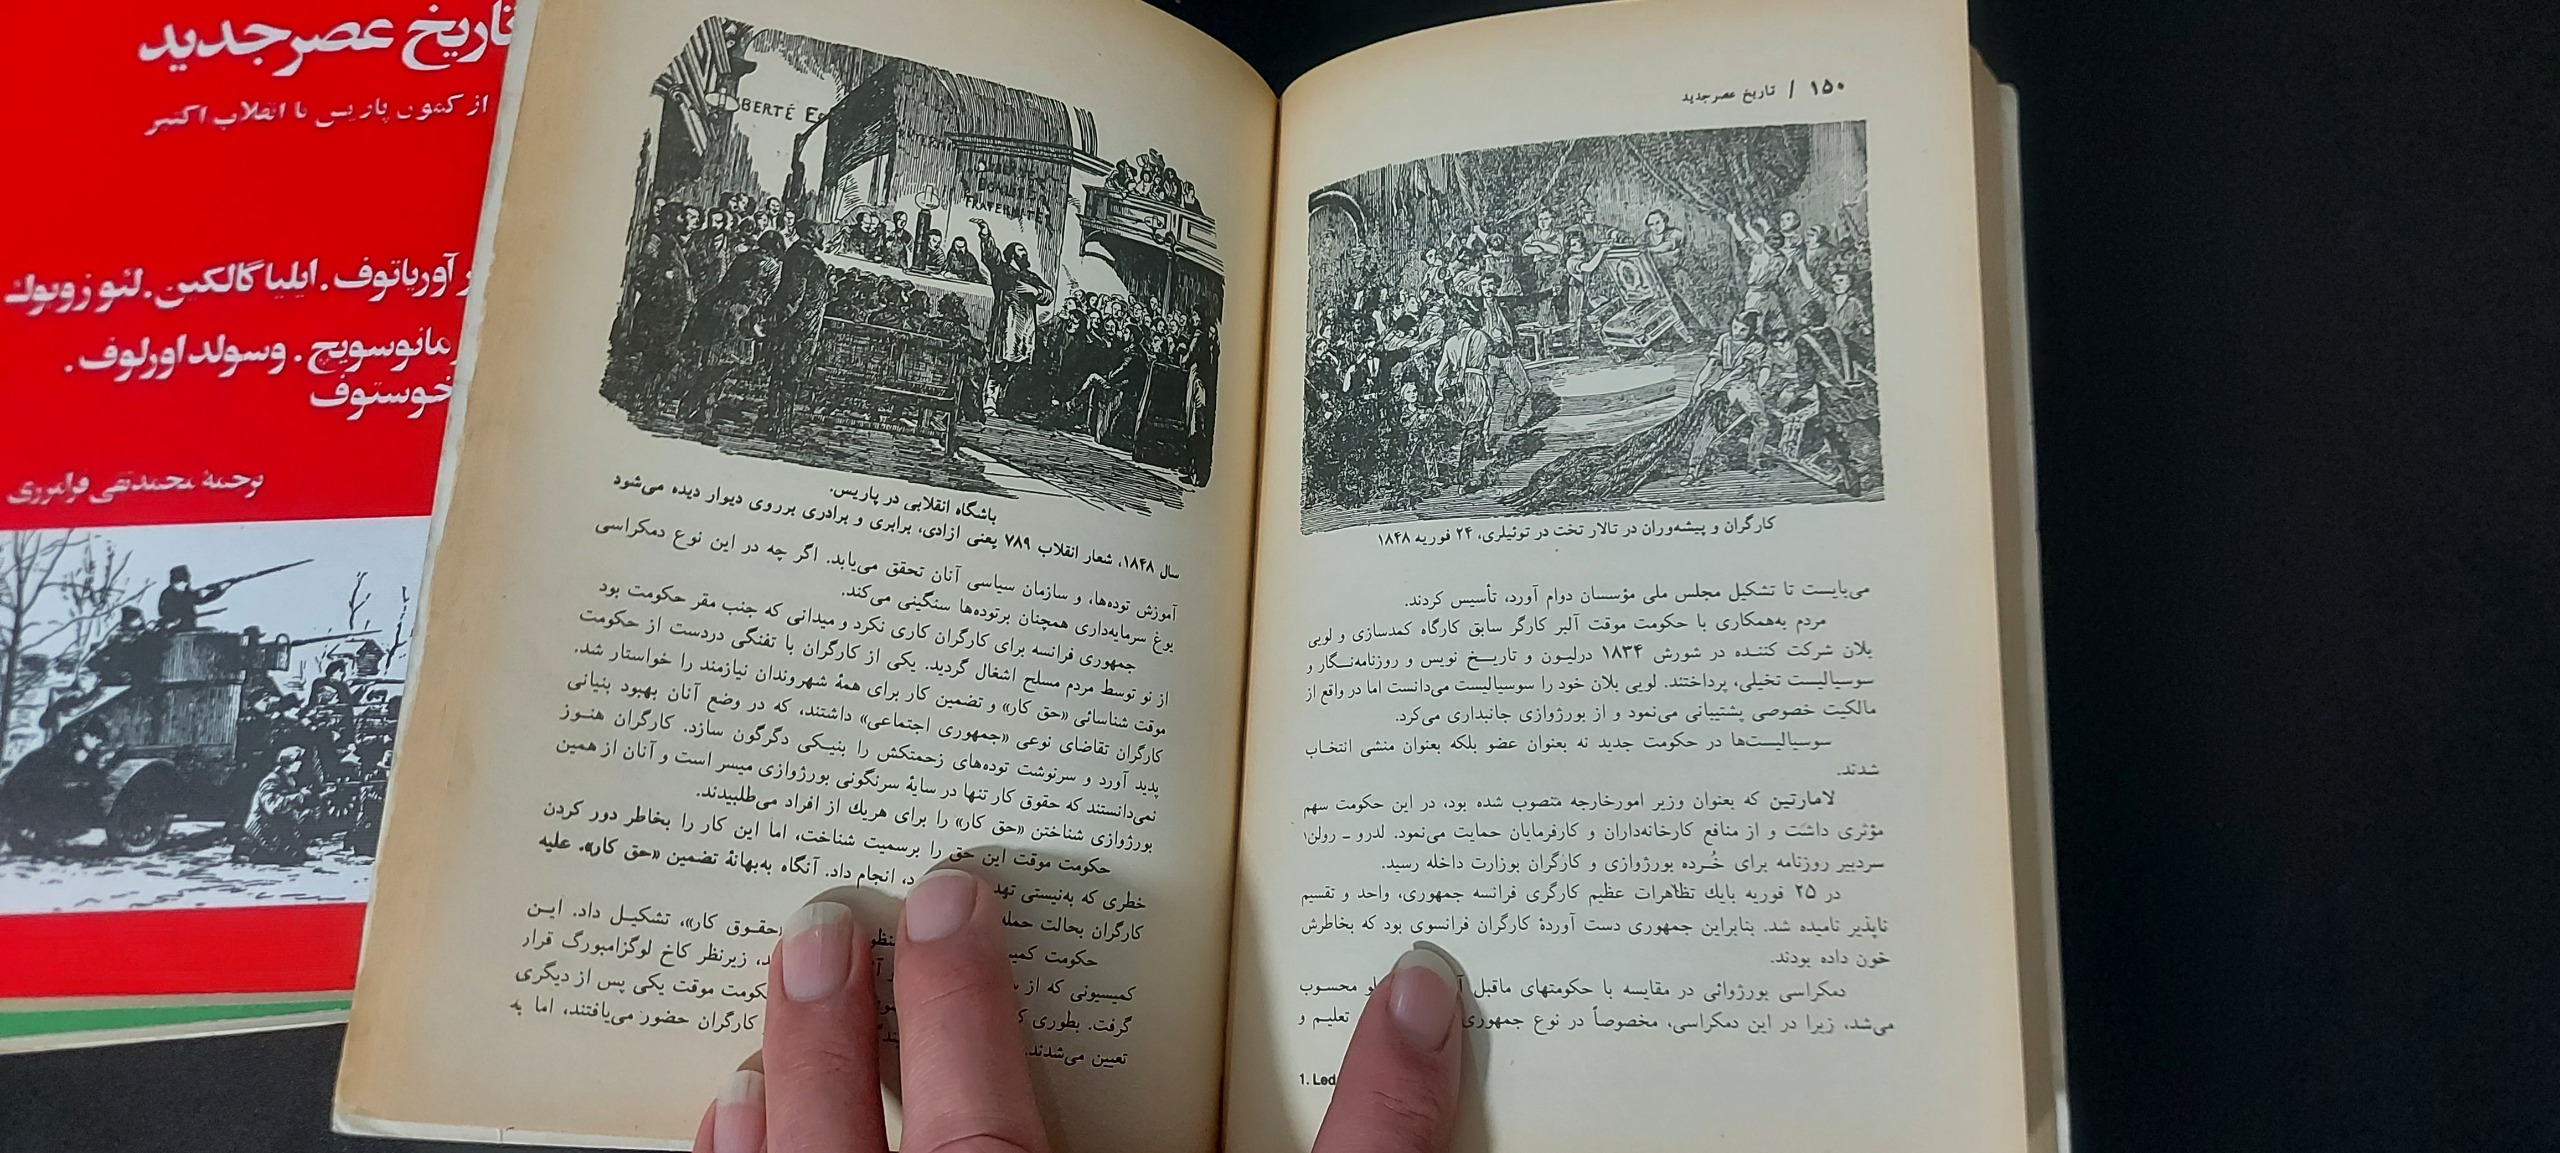 تاریخ عصر جدید
از کمون پاریس تا انقلاب اکتبر
آورباتوف. ایلیا گالکین. لئو زوبوك
مانوسویچ. وسولد اورلوف.
خوستوف
ترجمهٔ محمدتقی فرامرزی
۱۵۰ / تاریخ عصر جدید
کارگران و پیشه‌وران در تالار تخت در توئیلری، ۲۴ فوریه ۱۸۴۸
می‌بایست تا تشکیل مجلس ملی مؤسسان دوام آورد، تأسیس کردند.
مردم به‌همکاری با حکومت موقت آلبر کارگر سابق کارگاه کمدسازی و لویی
بلان شرکت کننده در شورش ۱۸۳۴ درلیون و تاریخ نویس و روزنامه‌نگار و
سوسیالیست تخیلی، پرداختند. لویی بلان خود را سوسیالیست می‌دانست اما در واقع از
مالکیت خصوصی پشتیبانی می‌نمود و از بورژوازی جانبداری می‌کرد.
سوسیالیست‌ها در حکومت جدید نه بعنوان عضو بلکه بعنوان منشی انتخاب
شدند.
لامارتین که بعنوان وزیر امورخارجه منصوب شده بود، در این حکومت سهم
مؤثری داشت و از منافع کارخانه‌داران و کارفرمایان حمایت می‌نمود. لدرو ـ رولن۱
سردبیر روزنامه برای خُرده بورژوازی و کارگران بوزارت داخله رسید.
در ۲۵ فوریه بایك تظاهرات عظیم کارگری فرانسه جمهوری، واحد و تقسیم
ناپذیر نامیده شد. بنابراین جمهوری دست آوردهٔ کارگران فرانسوی بود که بخاطرش
خون داده بودند.
دمکراسی بورژوائی در مقایسه با حکومتهای ماقبل محسوب
می‌شد، زیرا در این دمکراسی، مخصوصاً در نوع جمهوری تعلیم و
1. Led
BERTÉ E
EGALITÉ
FRATERNITÉ
باشگاه انقلابی در پاریس.
سال ۱۸۴۸، شعار انقلاب ۷۸۹ یعنی ازادی، برابری و برادری برروی دیوار دیده می‌شود
آموزش توده‌ها، و سازمان سیاسی آنان تحقق می‌یابد. اگر چه در این نوع دمکراسی
یوغ سرمایه‌داری همچنان برتوده‌ها سنگینی می‌کند.
جمهوری فرانسه برای کارگران کاری نکرد و میدانی که جنب مقر حکومت بود
از نو توسط مردم مسلح اشغال گردید. یکی از کارگران با تفنگی دردست از حکومت
موقت شناسائی «حق کار» و تضمین کار برای همهٔ شهروندان نیازمند را خواستار شد.
کارگران تقاضای نوعی «جمهوری اجتماعی» داشتند، که در وضع آنان بهبود بنیانی
پدید آورد و سرنوشت توده‌های زحمتکش را بنیکی دگرگون سازد. کارگران هنوز
نمی‌دانستند که حقوق کار تنها در سایهٔ سرنگونی بورژوازی میسر است و آنان از همین
بورژوازی شناختن «حق کار» را برای هریك از افراد می‌طلبیدند.
حکومت موقت این حق را برسمیت شناخت، اما این کار را بخاطر دور کردن
خطری که به‌نیستی تهد د، انجام داد. آنگاه به‌بهانهٔ تضمین «حق کار». علیه
کارگران بحالت حمله
حکومت کمیـ نظو «حقوق کار»، تشکیل داد. این
کمیسیونی که از د، زیرنظر کاخ لوگزامبورگ قرار
گرفت. بطوری کـ کومت موقت یکی پس از دیگری
تعیین می‌شدند. کارگران حضور می‌یافتند، اما به